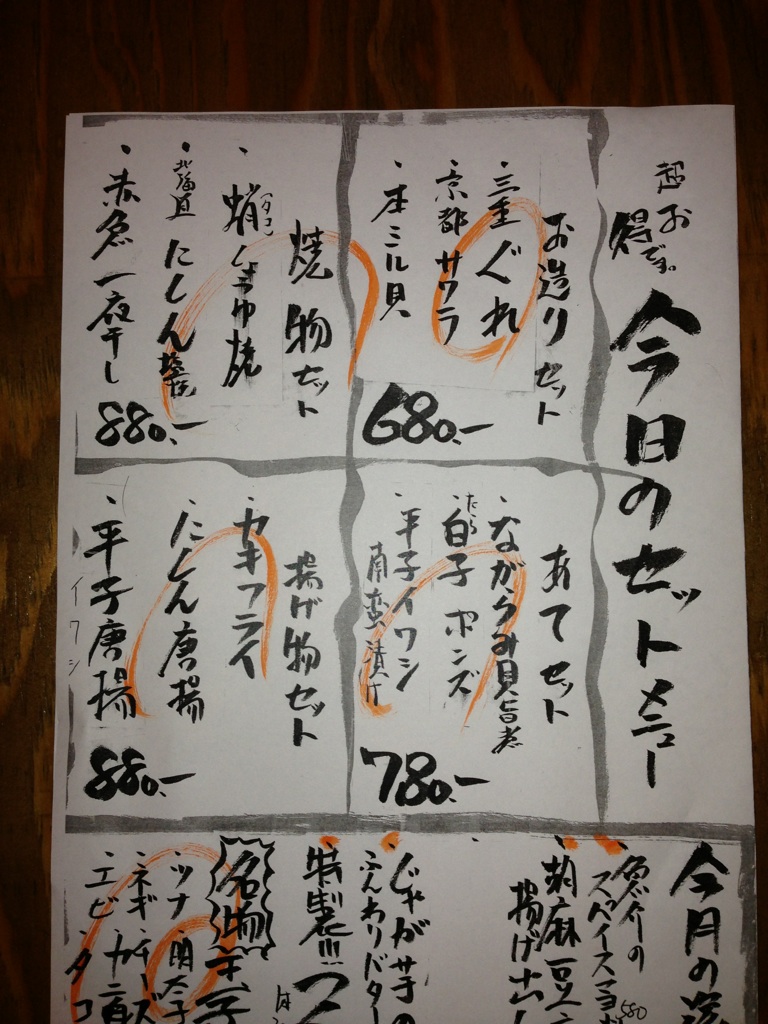 超お得です。
今日のセットメニュー
お造りセット
・三重ぐれ
・京都サワラ
・本ミル貝
680.-
焼物セット
・蛸しょうゆ焼
・北海道にしん塩焼
・赤魚一夜干し
880.-
あてセット
・ながらみ貝旨煮
・たら白子ポンズ
・平子イワシ
南蛮漬け
780.-
揚げ物セット
・カキフライ
・にしん唐揚
・平子唐揚
イワシ
880.-
今月の
魚介の
スパイスマヨ
580
胡麻豆
揚げ出し
・じゃが芋の
ふんわりバター
特製!!!つく
名物玉子
・ツナ 明太子
・ネギ チーズ
・エビ
タコ